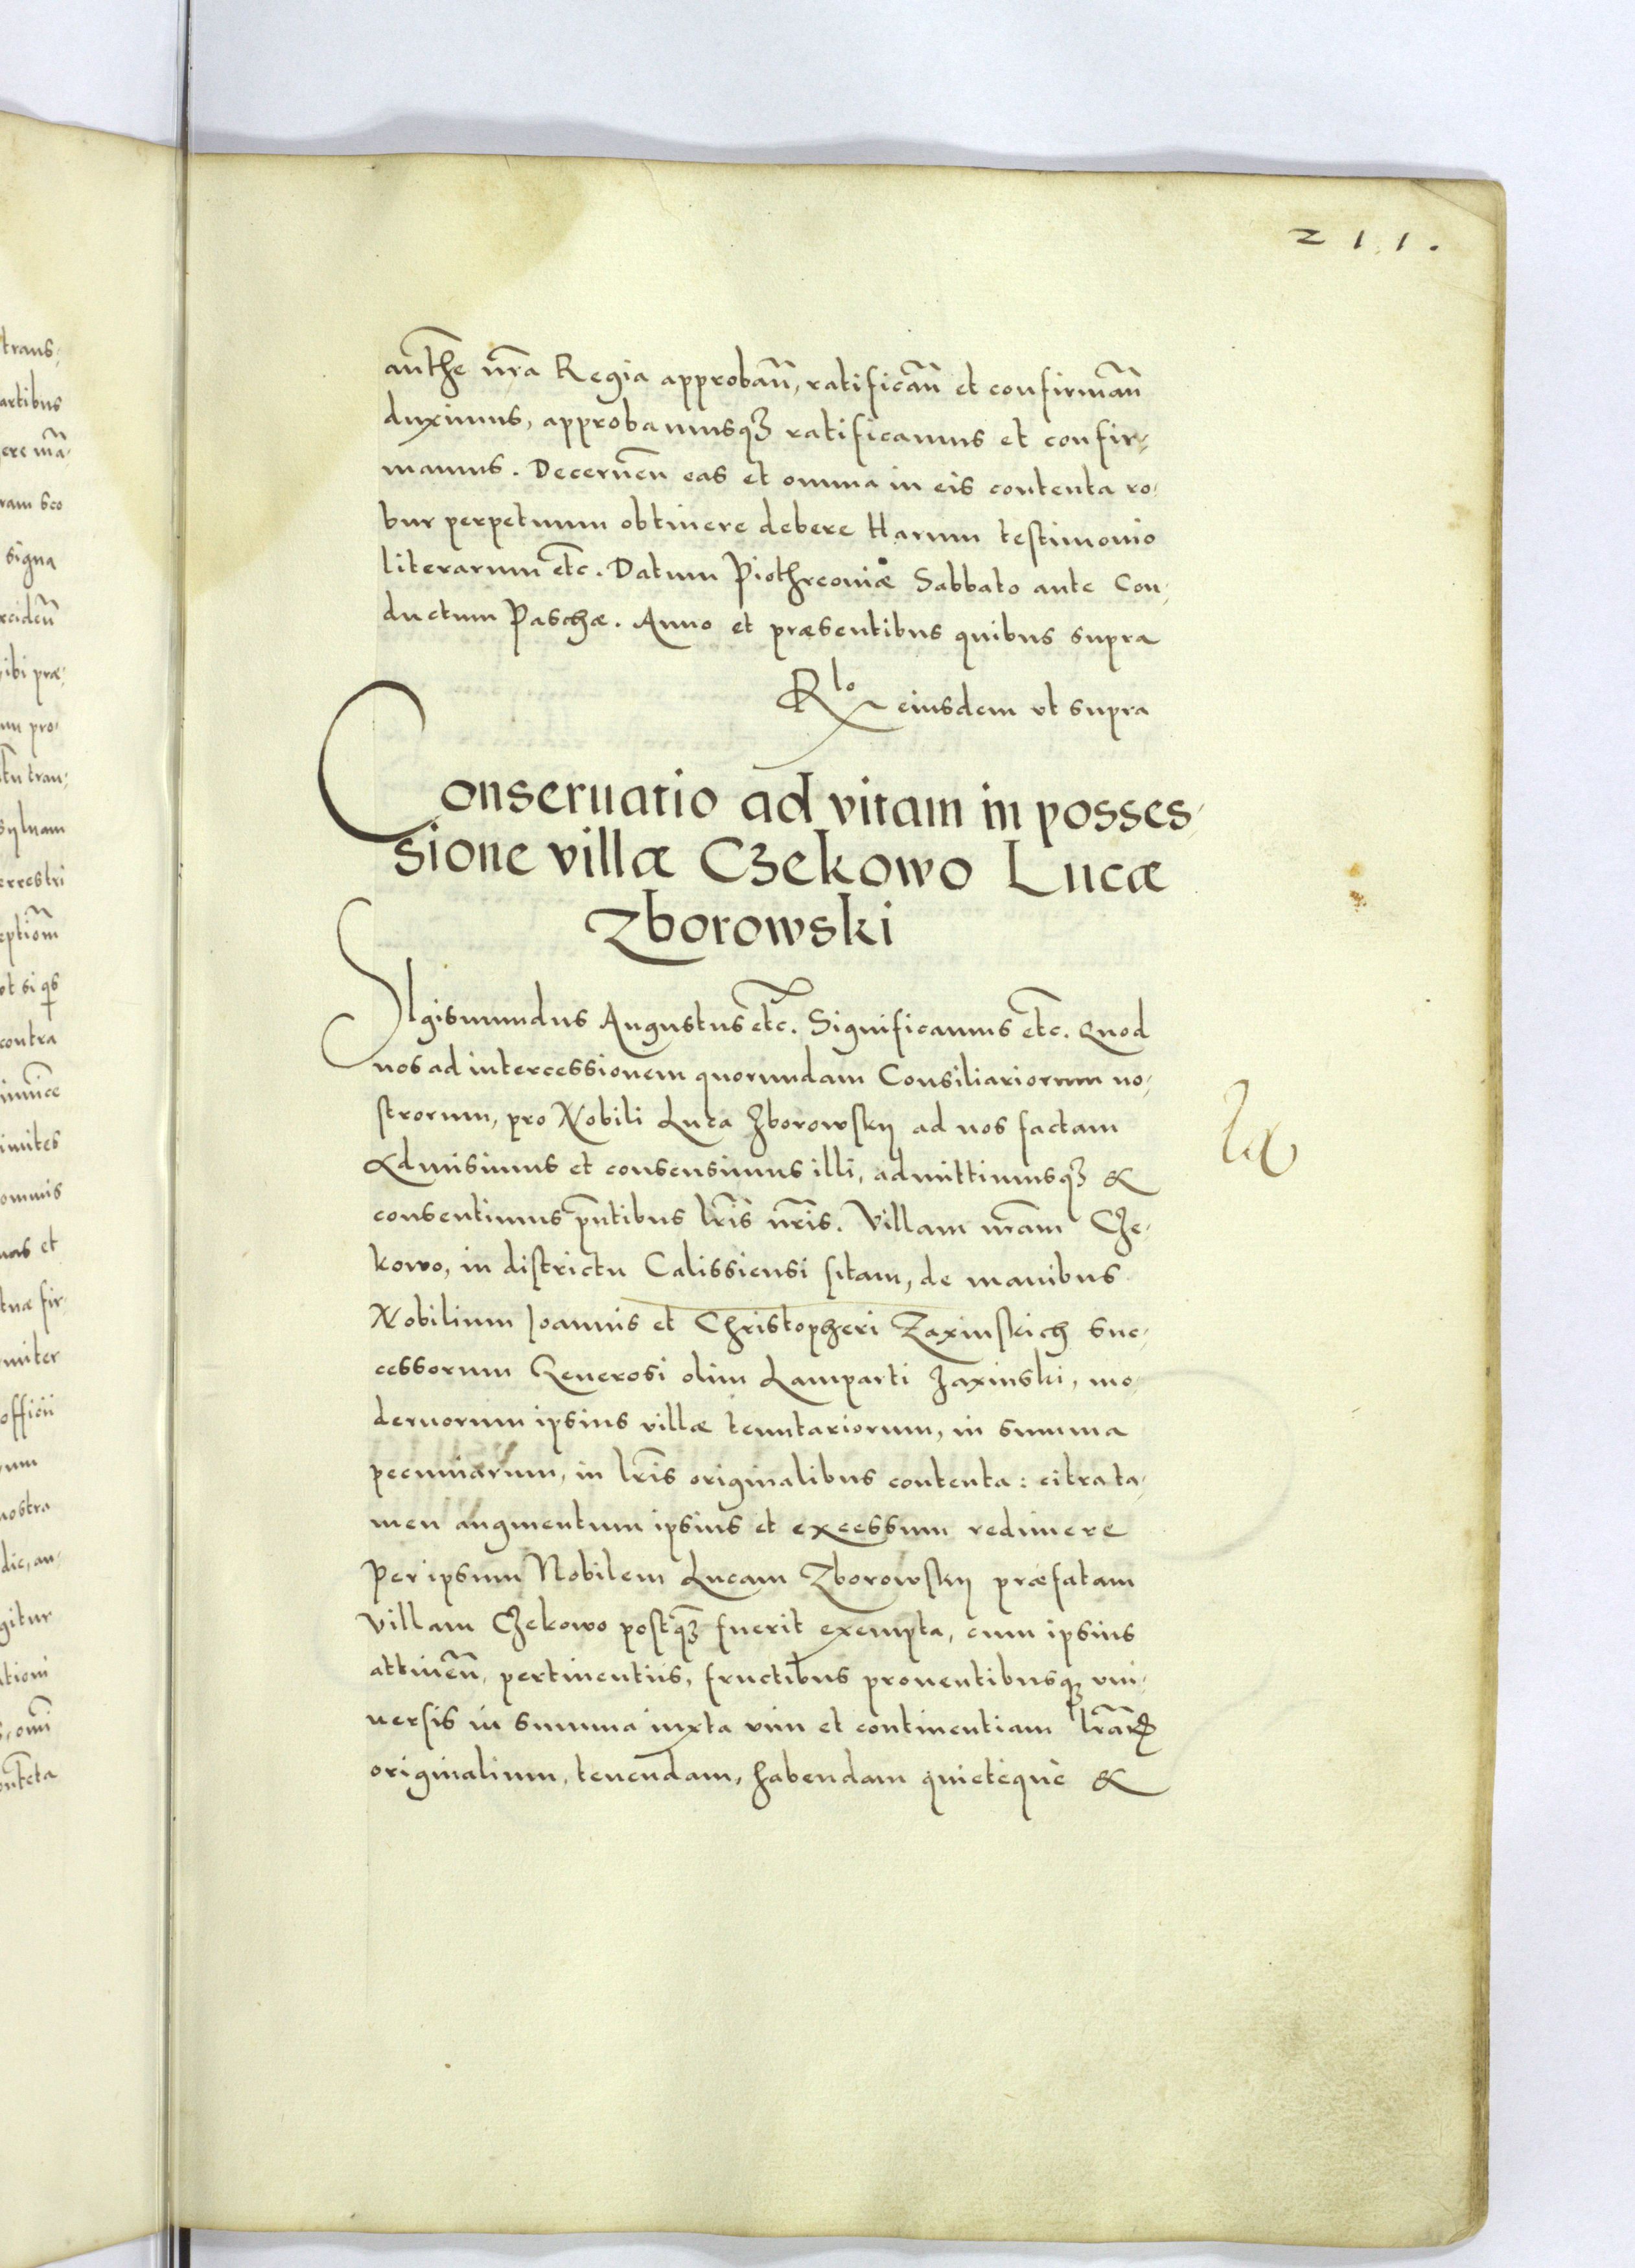 211.
autħe nr̃a Regia approbañ, ratificañ et confirmañ
duximus, approbamusqȝ ratificamus et confir-
mamus. Decerneñ eas et omnia in eis contenta ro-
bur perpetuum obtinere debere Harum testimonio
literarum etc. Datum Piothrcouiæ Sabbato ante Con-
ductum Paschæ. Anno et præsentibus quibus supra
Rlo eiusdem vt supra
Conseruatio ad vitam in posses-
sione villæ Czekowo Lucæ
Zborowski
SIgismundus Augustus etc. Significamus etc. Quod
nos ad intercessionem quorundam Consiliariorum no-
strorum, pro Nobili Luca Zborowskij ad nos factam
Admisimus et consensimus illi, admittimusqȝ &
consentimus pñtibus lr̃is nr̃is. Villam nr̃am Cze-
kowo, in districtu Calissiensi sitam, de manibus
Nobilium Joannis et Christopheri Zaxinskich suc-
cessorum Generosi olim Lamparti Zaxinski, mo-
dernorum ipsius villæ tenutariorum, in summa
pecuniarum, in lr̃is originalibus contenta: citra ta-
men augmentum ipsius et excessum redimere
Per ipsum Nobilem Lucam Zborowskij præfatam
Villam Czekowo postqȝ fuerit exempta, cum ipsius
attineñ, pertinentiis, fructibus prouentibusqȝ vni-
uersis in summa iuxta vim et continentiam lr̃arꝝ
originalium, tenendam, habendam quietèquè &
trans-
artibus
ere m̃a-
ram sco
signa
cideñ
ibi præ-
um pro-
tũ tran-
syluam
errestri
eptiom̃
vt si qs
contra
imites
ommis
uas et
tuæ fir-
miter
officii
um
nostra
die, au-
gitur
ationi